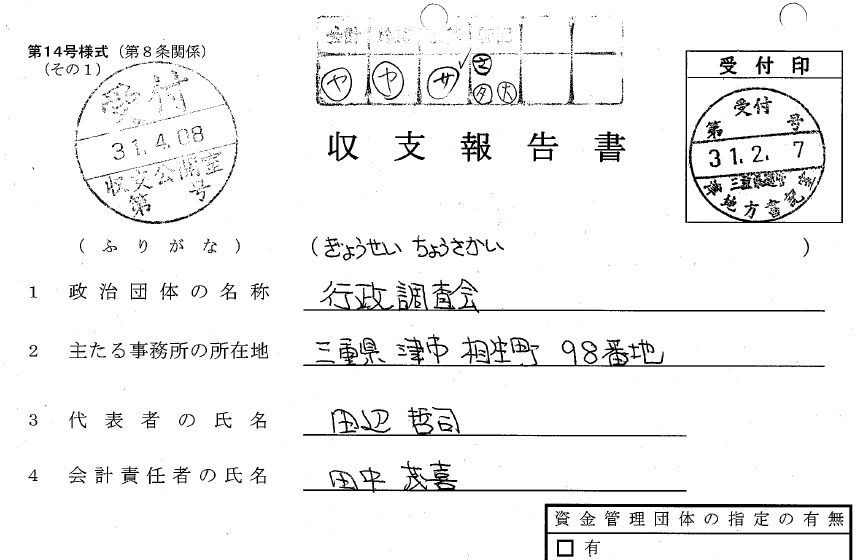 第14号様式（第8条関係）
（その1）
受付
31.4.08
収支公開室
第 号
会計
ヤ ヤ サ
タ 大
収支報告書
受付印
受付
第 号
31.2.7
地方書記室
（ふりがな）（ぎょうせい ちょうさかい ）
1 政治団体の名称 行政調査会
2 主たる事務所の所在地 三重県 津市 相生町 98番地
3 代表者の氏名 田辺 哲司
4 会計責任者の氏名 田中 茂喜
資金管理団体の指定の有無
□ 有